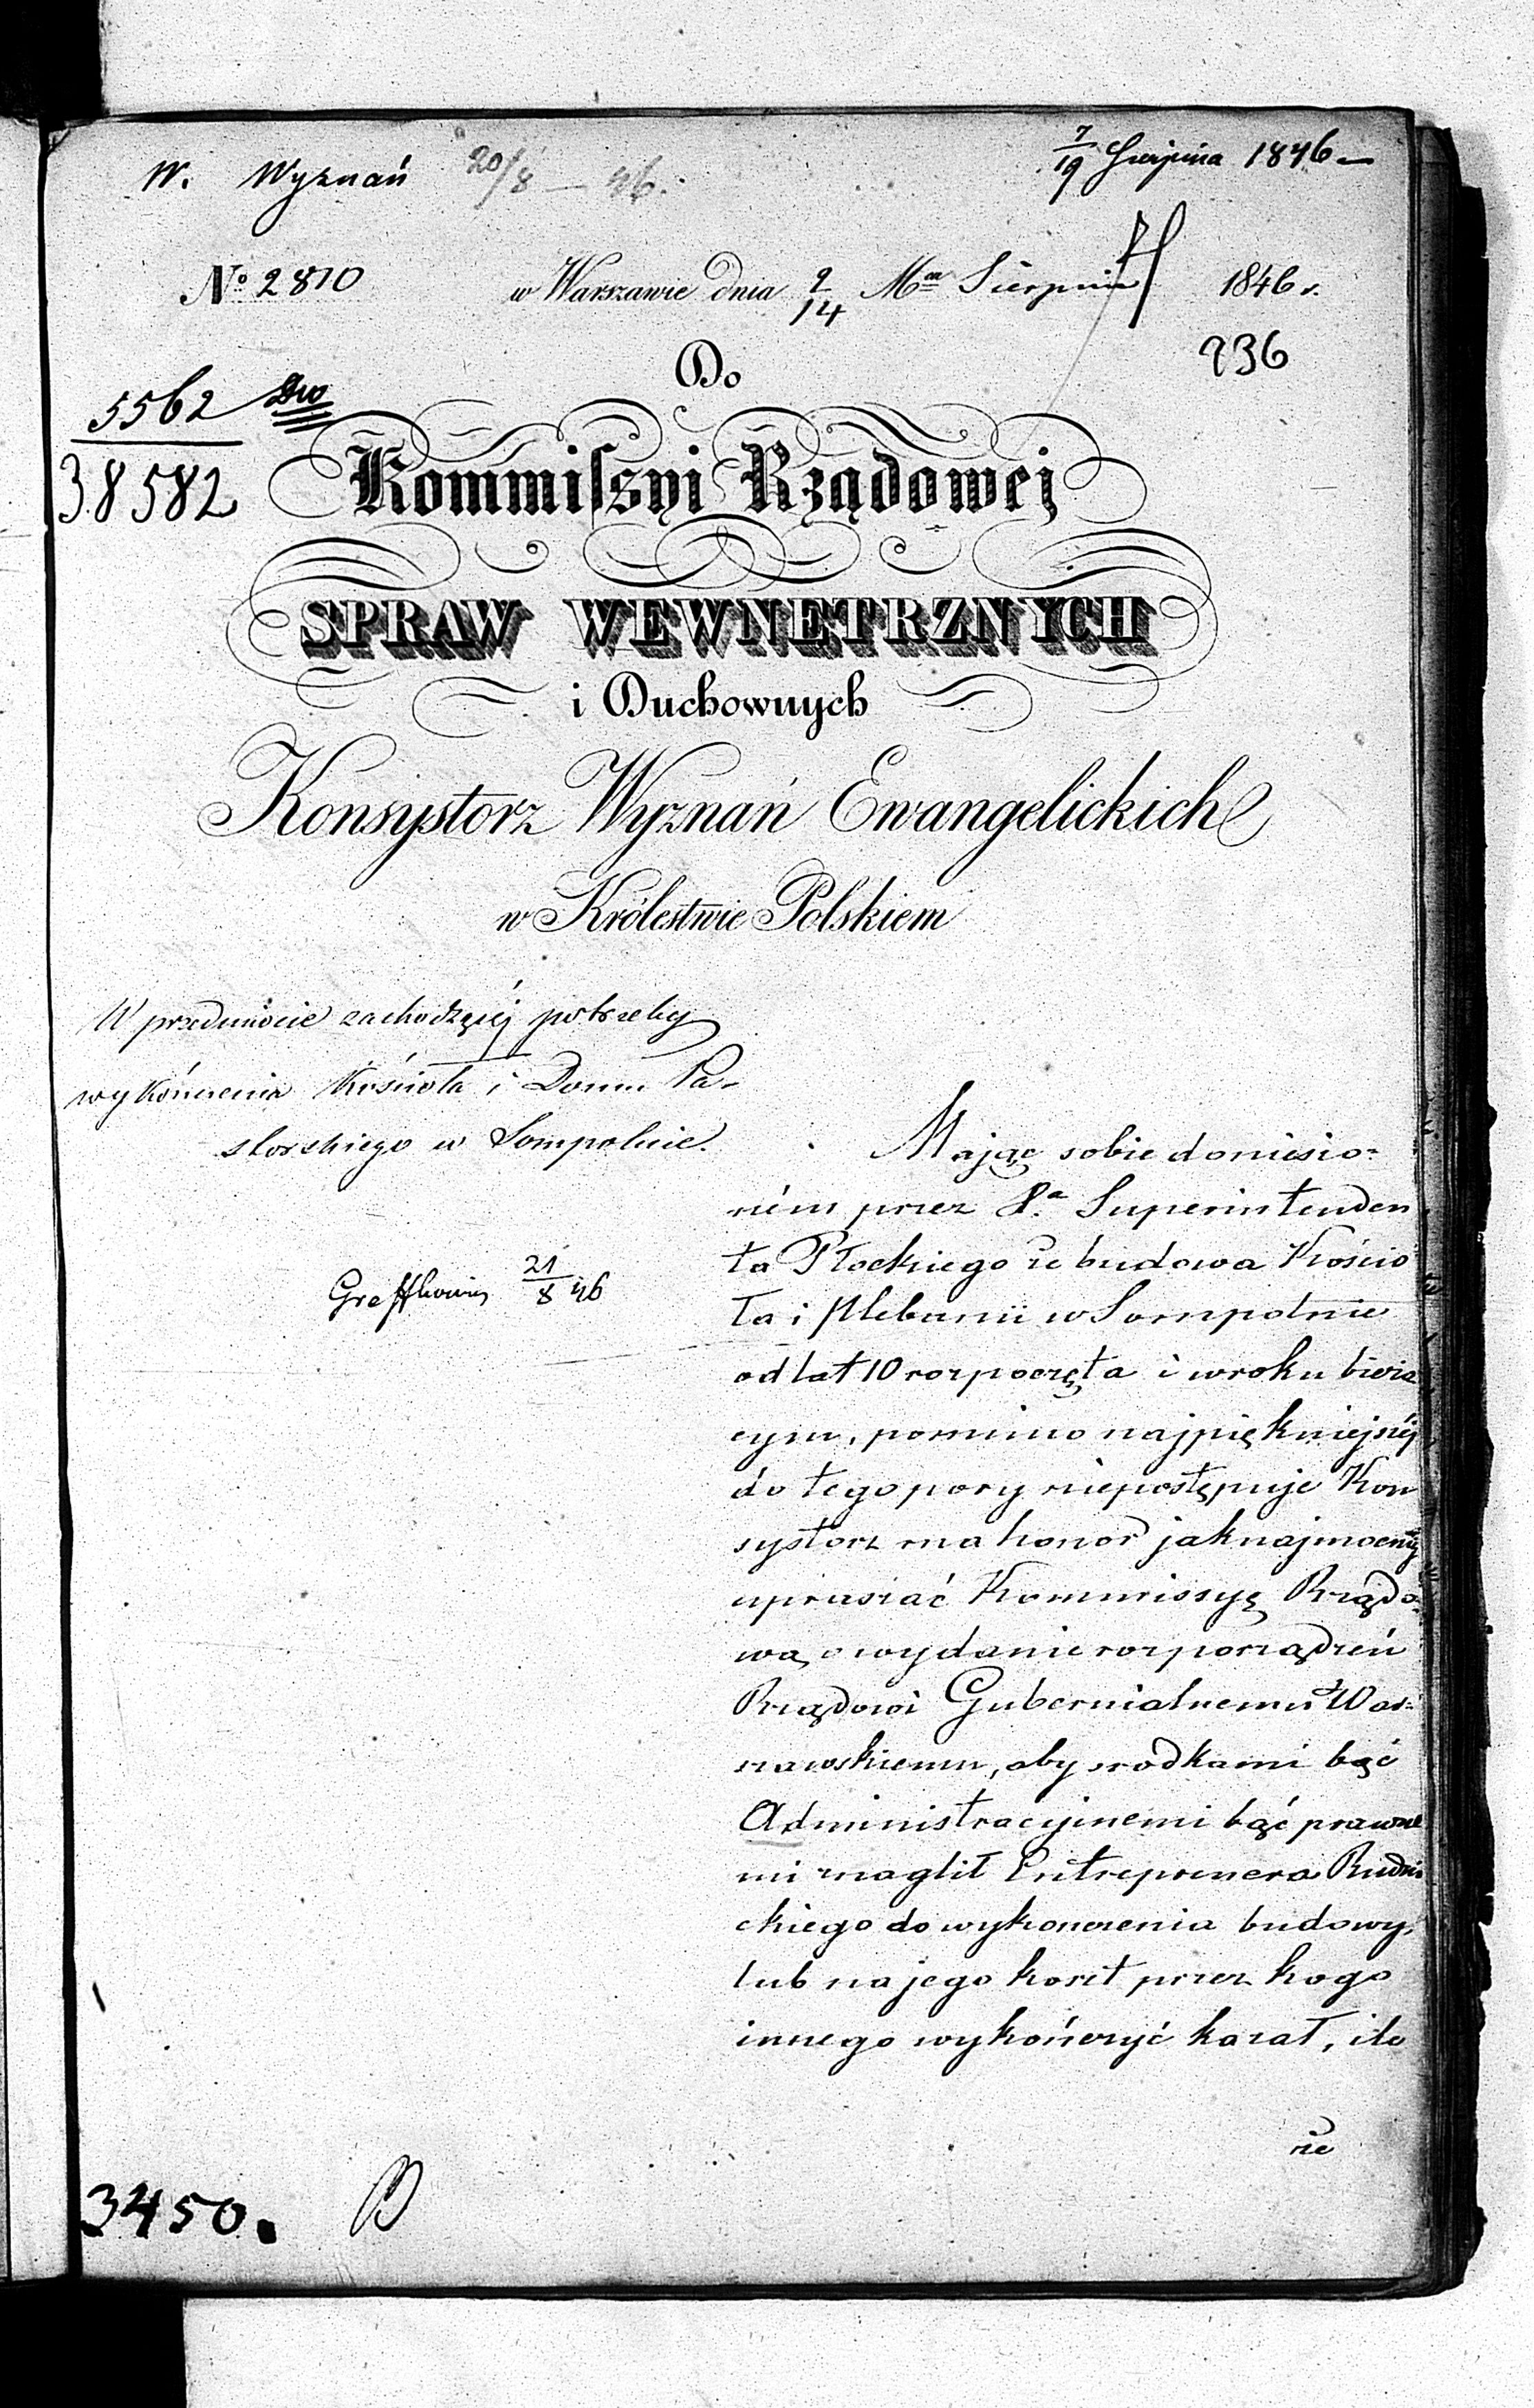 W. Wyznań 20/8 – 46.
7/19 Sierpnia 1846 –
No 2810 w Warszawie dnia 2/14 Mca Sierpnia 1846 r.
236
5562
38582
Do
Kommissyi Rządowej
SPRAW WEWNĘTRZNYCH
i Duchownych
Konsystorz Wyznań Ewangelickich
w Królestwie Polskiem
W przedmiocie zachodzącéj potrzeby
wykończenia Kościoła i Domu Pa-
storskiego w Sompolnie.
21/8 46
Mając sobie doniesio-
ném przez Superintenden
ta Płockiego że budowa Kościo
ła i Plebanii w Sompolnie
od lat 10 rozpoczęta i w roku bieżą
cym, pomimo najpiękniejszéj
do tego pory niepostępuje Kon
systorz ma honor jaknajmocniéj
upraszać Kommissyę Rządo-
wą o wydanie rozporządzeń
Rządowi Gubernialnemu War-
szawskiemu, aby srodkami bąć
Administracyjnemi bąć prawne
mi naglił Entreprenera Rudni
ckiego do wykonczenia budowy,
lub na jego koszt przez kogo
innego wykończyć kazał, ile
że
3450.